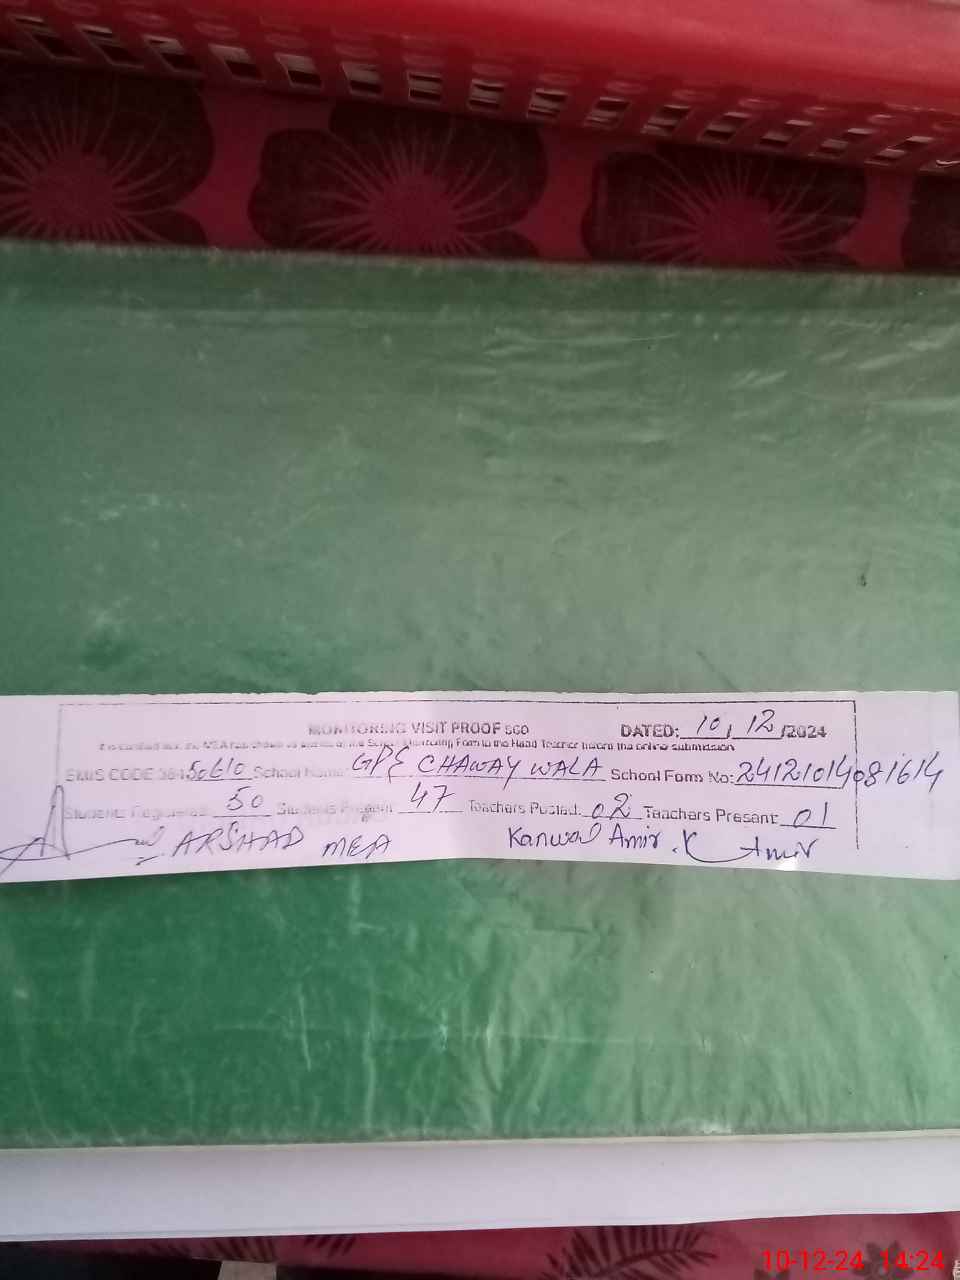 MONITORING VISIT PROOF SGO DATED: 10/12/2024
It is certified that the MEA has shown all entries of the School Monitoring Form to the Head Teacher before the online submission
EMIS CODE 384 50610 School Name: GPS CHAWAY WALA School Form No: 24121014081614
Students Registered: 50 Students Present: 47 Teachers Posted: 02 Teachers Present: 01
ARSHAD MEA Kanwal Amir. K Amir
10-12-24 14:24